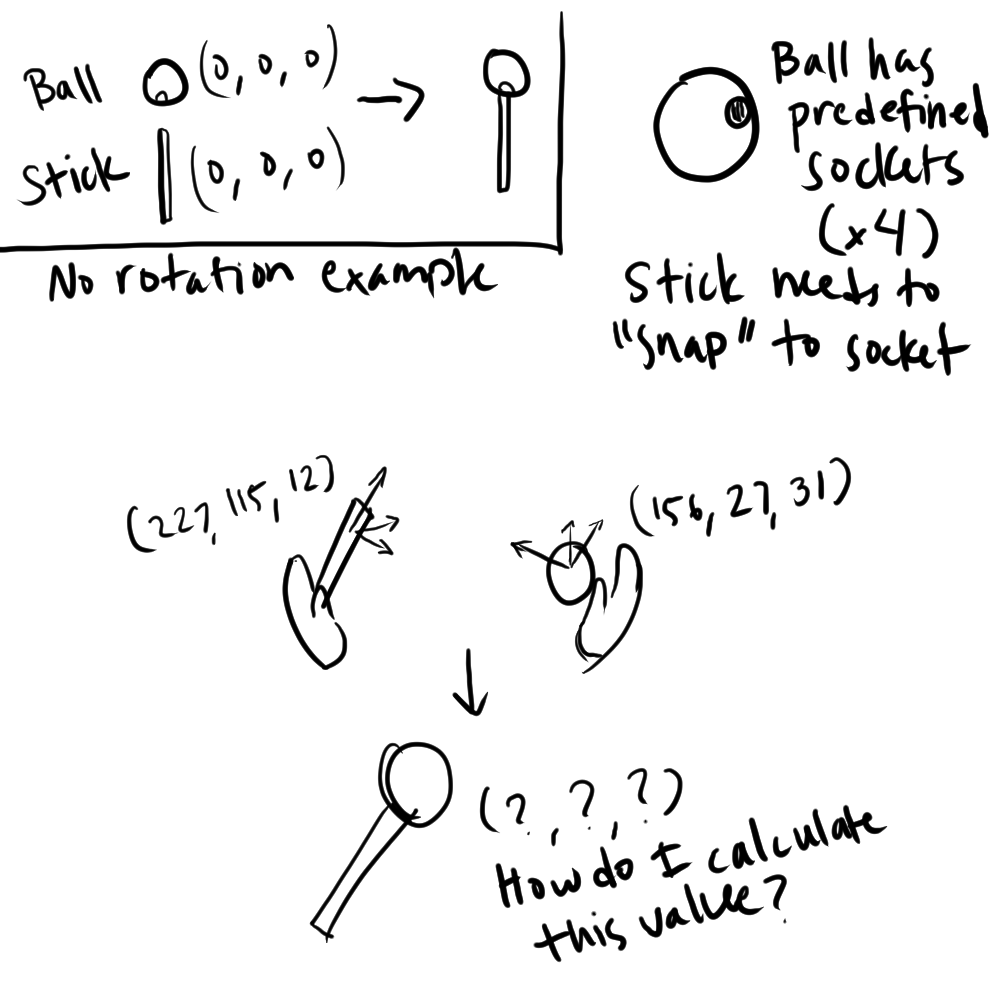 Ball (0, 0, 0)
Stick (0, 0, 0)
No rotation example
Ball has
predefined
sockets
(x4)
Stick needs to
"snap" to socket
(227, 115, 12)
(156, 27, 31)
(?, ?, ?)
How do I calculate
this value?